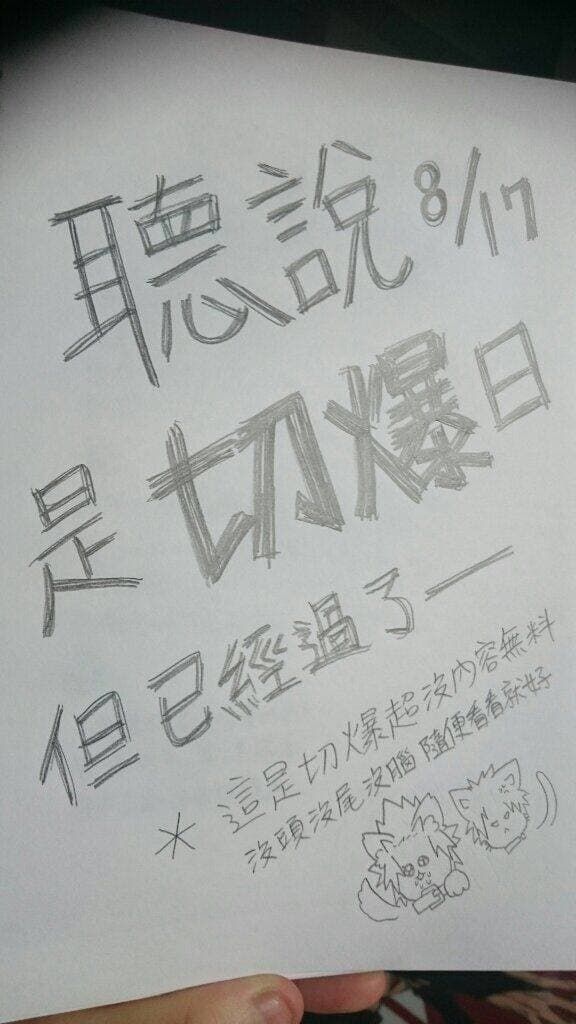 聽說 8/17
是切爆日
但已經過了一
＊這是切爆超沒內容無料
沒頭沒尾沒腦 隨便看看就好